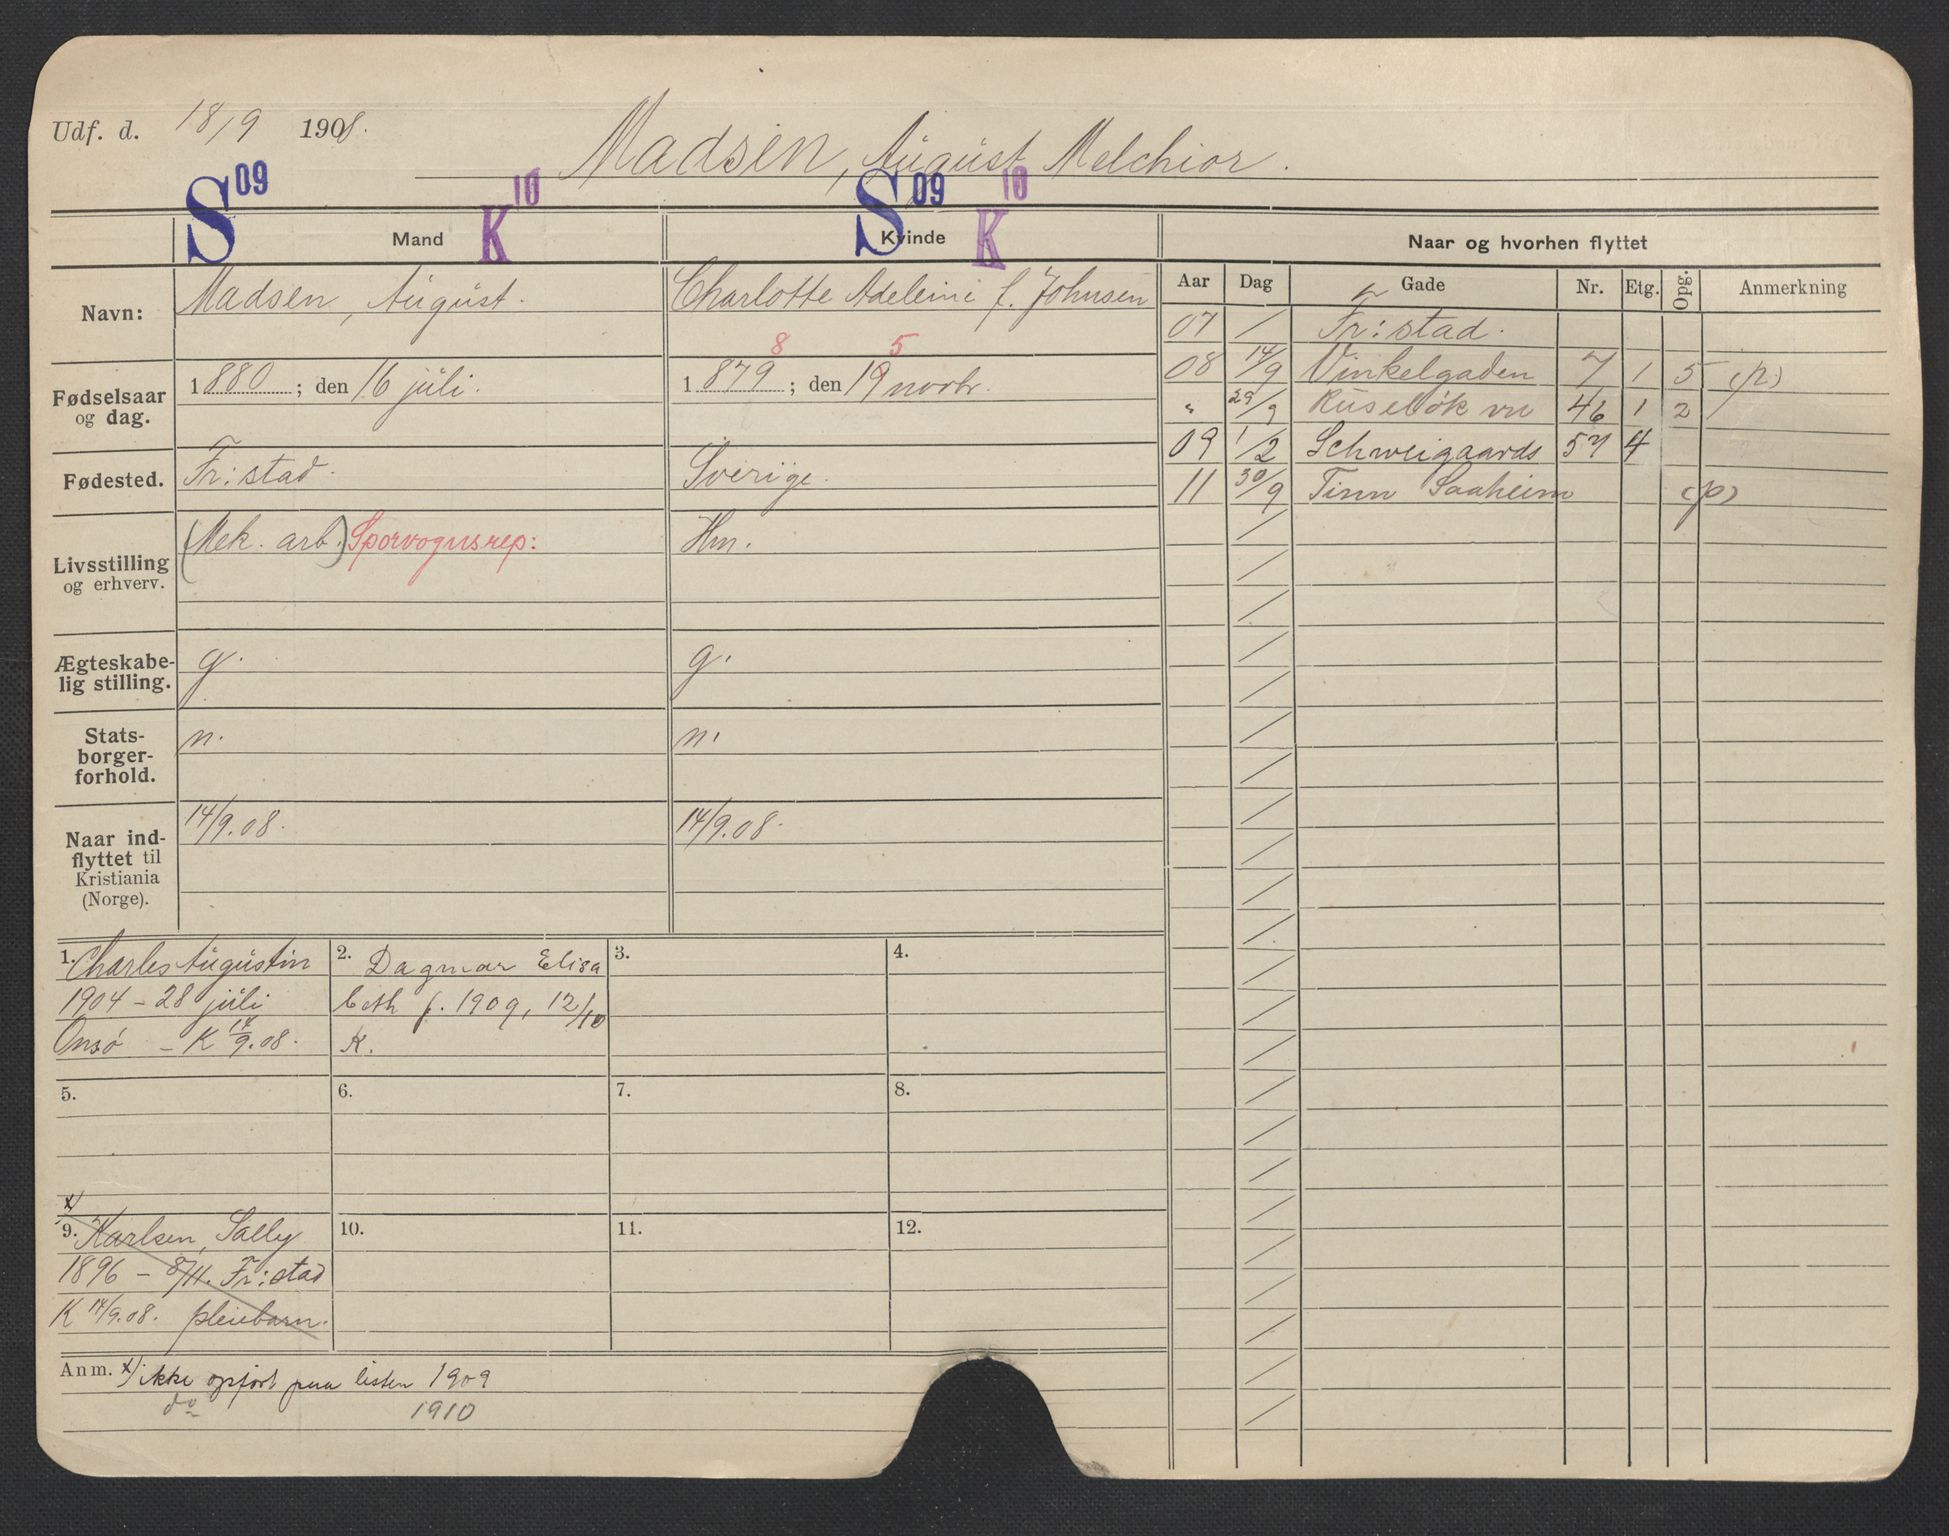 Udf. d. 18/9 1908.
Madsen, August Melchior.
S 09 K 10 S 09 K 10
Mand Kvinde Naar og hvorhen flyttet
Aar Dag Gade Nr. Etg. Opg. Anmerkning
Navn: Madsen, August. Charlotte Adeleine f. Johnsen
8 5
Fødselsaar og dag. 1880; den 16 juli. 1879; den 19 novbr.
Fødested. Fr:stad. Sverige.
Livsstilling og erhverv. (Mek. arb.) Sporvognsrep: Hm.
Ægteskabe-
lig stilling. g. g.
Stats-
borger-
forhold. n. n.
Naar ind-
flyttet til
Kristiania
(Norge). 14/9.08. 14/9.08.
07 / Fr:stad.
08 14/9 Vinkelgaden 7 1 5 (p)
" 29/9 Ruseløk vn 46 1 2 /
09 1/2 Schweigaards 57 4
11 30/9 Tinn Saaheim (p)
1. Charles Augustin
1904 - 28 juli
Onsö - K 14/9.08.
2. Dagmar Elisa
beth f. 1909, 12/10
K.
3.
4.
5.
6.
7.
8.
x)
9. Karlsen, Sally
1896 - 8/11. Fr:stad
K 14/9.08. pleiebarn.
10.
11.
12.
Anm. x) ikke opført paa listen 1909
do 1910